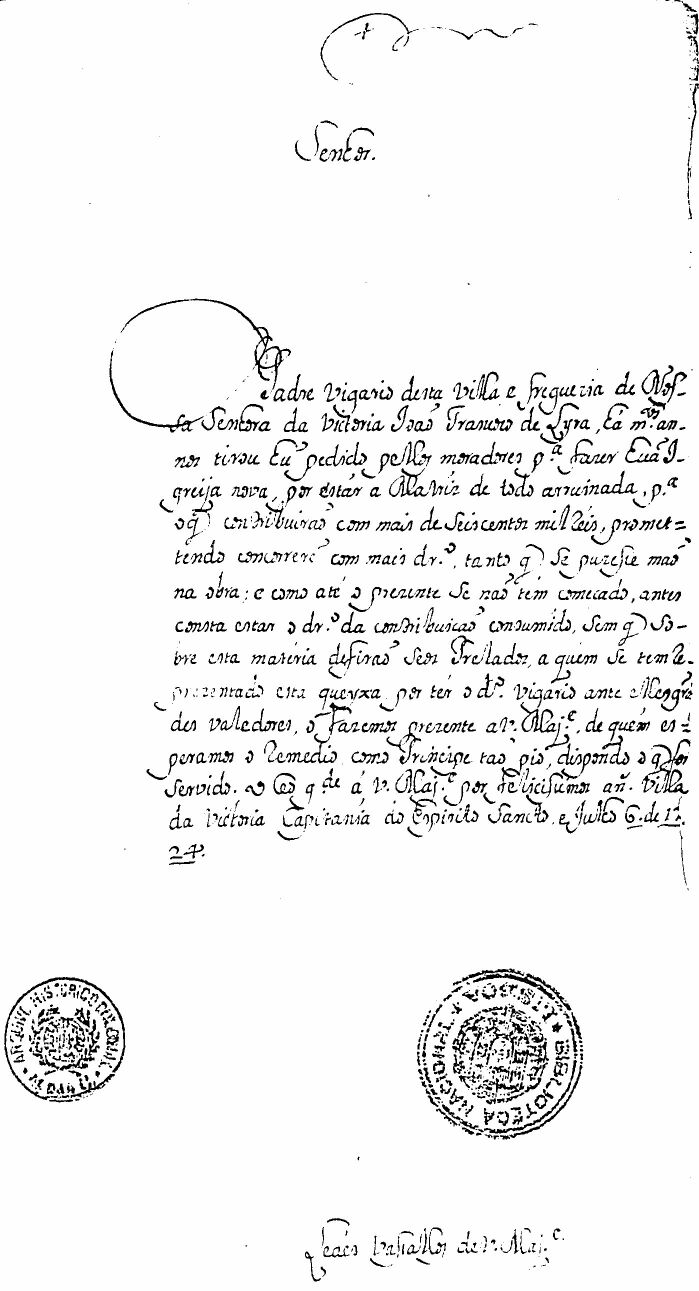 Senhor.
O Padre Vigario desta Villa e freguezia de Nos-
sa Senhora da Victoria Joaõ Francisco de Lyra, há m.tos an-
nos tirou hũ pedido pellos moradores p.ª fazer huã I-
greija nova, por estár a Matriz de todo arruinada, p.ª
o q̃ contribuiraõ com mais de seiscentos mil reis, promet=
tendo concorrerẽ com mais dr.º, tanto q̃ se puzesse maõ
na obra; e como até o prezente se naõ tem comecado, antes
consta estar o dr.º da contribuicaõ consumido, sem q̃ so-
bre esta matéria defiraõ seos Prelados, a quem se tem re-
prezentado esta queyxa, por ter o d.º Vigario ante elles gran-
des valedores, o fazemos prezente a V. Maj.e, de quem es-
peramos o Remedio como Principe taõ pio, dispondo o q̃ for
servido. O Ceo g.de á V. Maj.e por felicissimos añ. Villa
da Victoria Capitanía do Espirito Sancto, e Julho 6. de 17
24.
ARQUIVO HISTORICO COLONIAL
BIBLIOTECA NACIONAL LISBOA
Leaes Vassallos de V. Maj.e